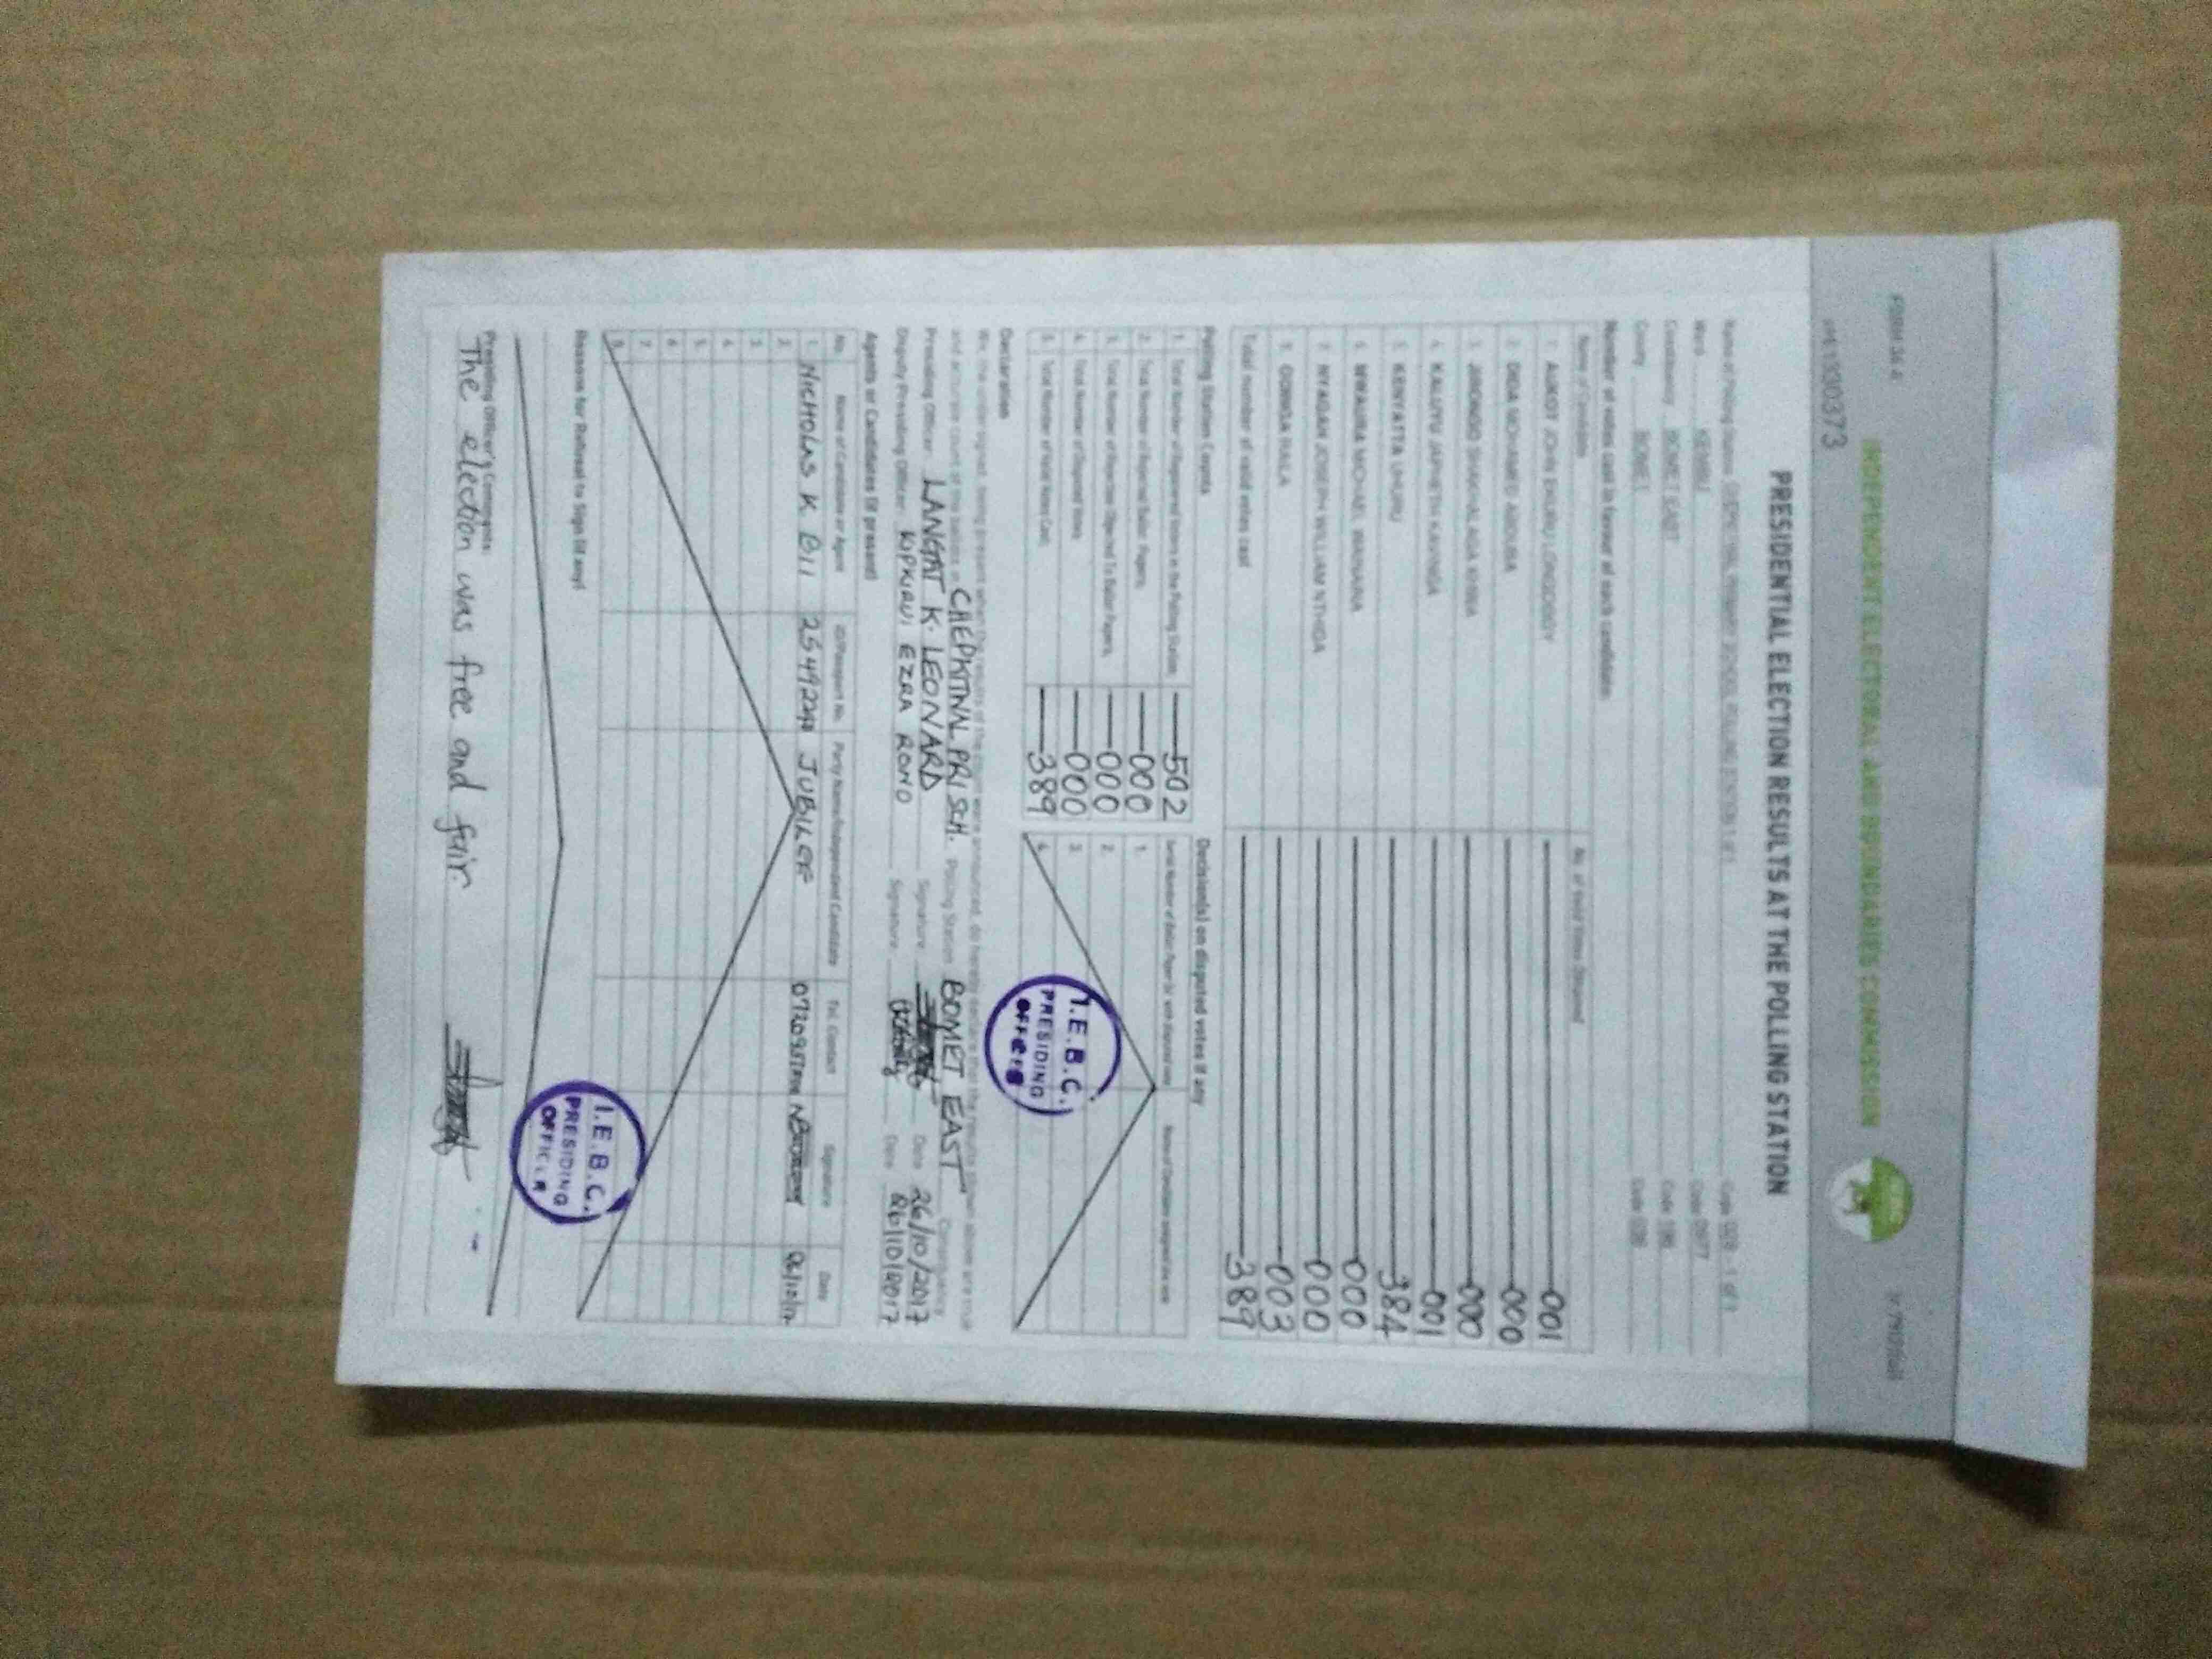 FORM 34 A
INDEPENDENT ELECTORAL AND BOUNDARIES COMMISSION
PRESIDENTIAL ELECTION RESULTS AT THE POLLING STATION
Name of Polling Station PRIMARY SCHOOL
Ward KEMBU Code 0977
Constituency BOMET EAST Code
County BOMET Code 036
Number of votes cast in favour of each candidate
Name of Candidate No. of Valid Votes Obtained
1. AUKOT JOHN EKURU LONGOGGY 001
2. DIDA MOHAMED ABDUBA 000
3. JIRONGO SHAKHALAGA KHWA 000
4. KALUYU JAPHETH KAVINGA 001
5. KENYATTA UHURU 384
6. MWAURA MICHAEL WAINAINA 000
7. NYAGAH JOSEPH WILLIAM NTHIGA 000
8. ODINGA RAILA 003
Total number of valid votes cast 389
Polling Station Counts
1. Total Number of Registered Voters in the Polling Station 502
2. Total Number of Rejected Ballot Papers 000
3. Total Number of Rejection Objected To Ballot Papers 000
4. Total Number of Disputed Votes 000
5. Total Number of Valid Votes Cast 389
Decision(s) on disputed votes if any
1.
2.
3.
4.
I.E.B.C.
PRESIDING
OFFICER
Declaration
We, the undersigned, being present when the results of the count were announced, do hereby declare that the results shown above are true
and accurate count of the ballots in CHEPKITWAL PRI SCH. Polling Station BOMET EAST Constituency
Presiding Officer: LANGAT K. LEONARD Signature Date 26/10/2017
Deputy Presiding Officer: KIPKIRUI EZRA RONO Signature Date 26/10/2017
Agents or Candidates (if present)
No. Name of Candidate or Agent ID/Passport No. Party Name/Independent Candidate Tel. Contact Signature Date
1. NICHOLAS K BII JUBILEE 26/10/17
2.
3.
4.
5.
6.
7.
8.
Reasons for Refusal to Sign (if any)
I.E.B.C.
PRESIDING
OFFICER
Presiding Officer's Comments:
The election was free and fair.